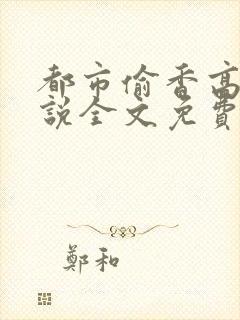 都市偷香高
說全文免費
鄭和